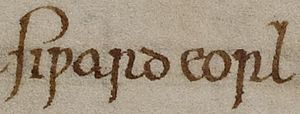 siƿard eorl